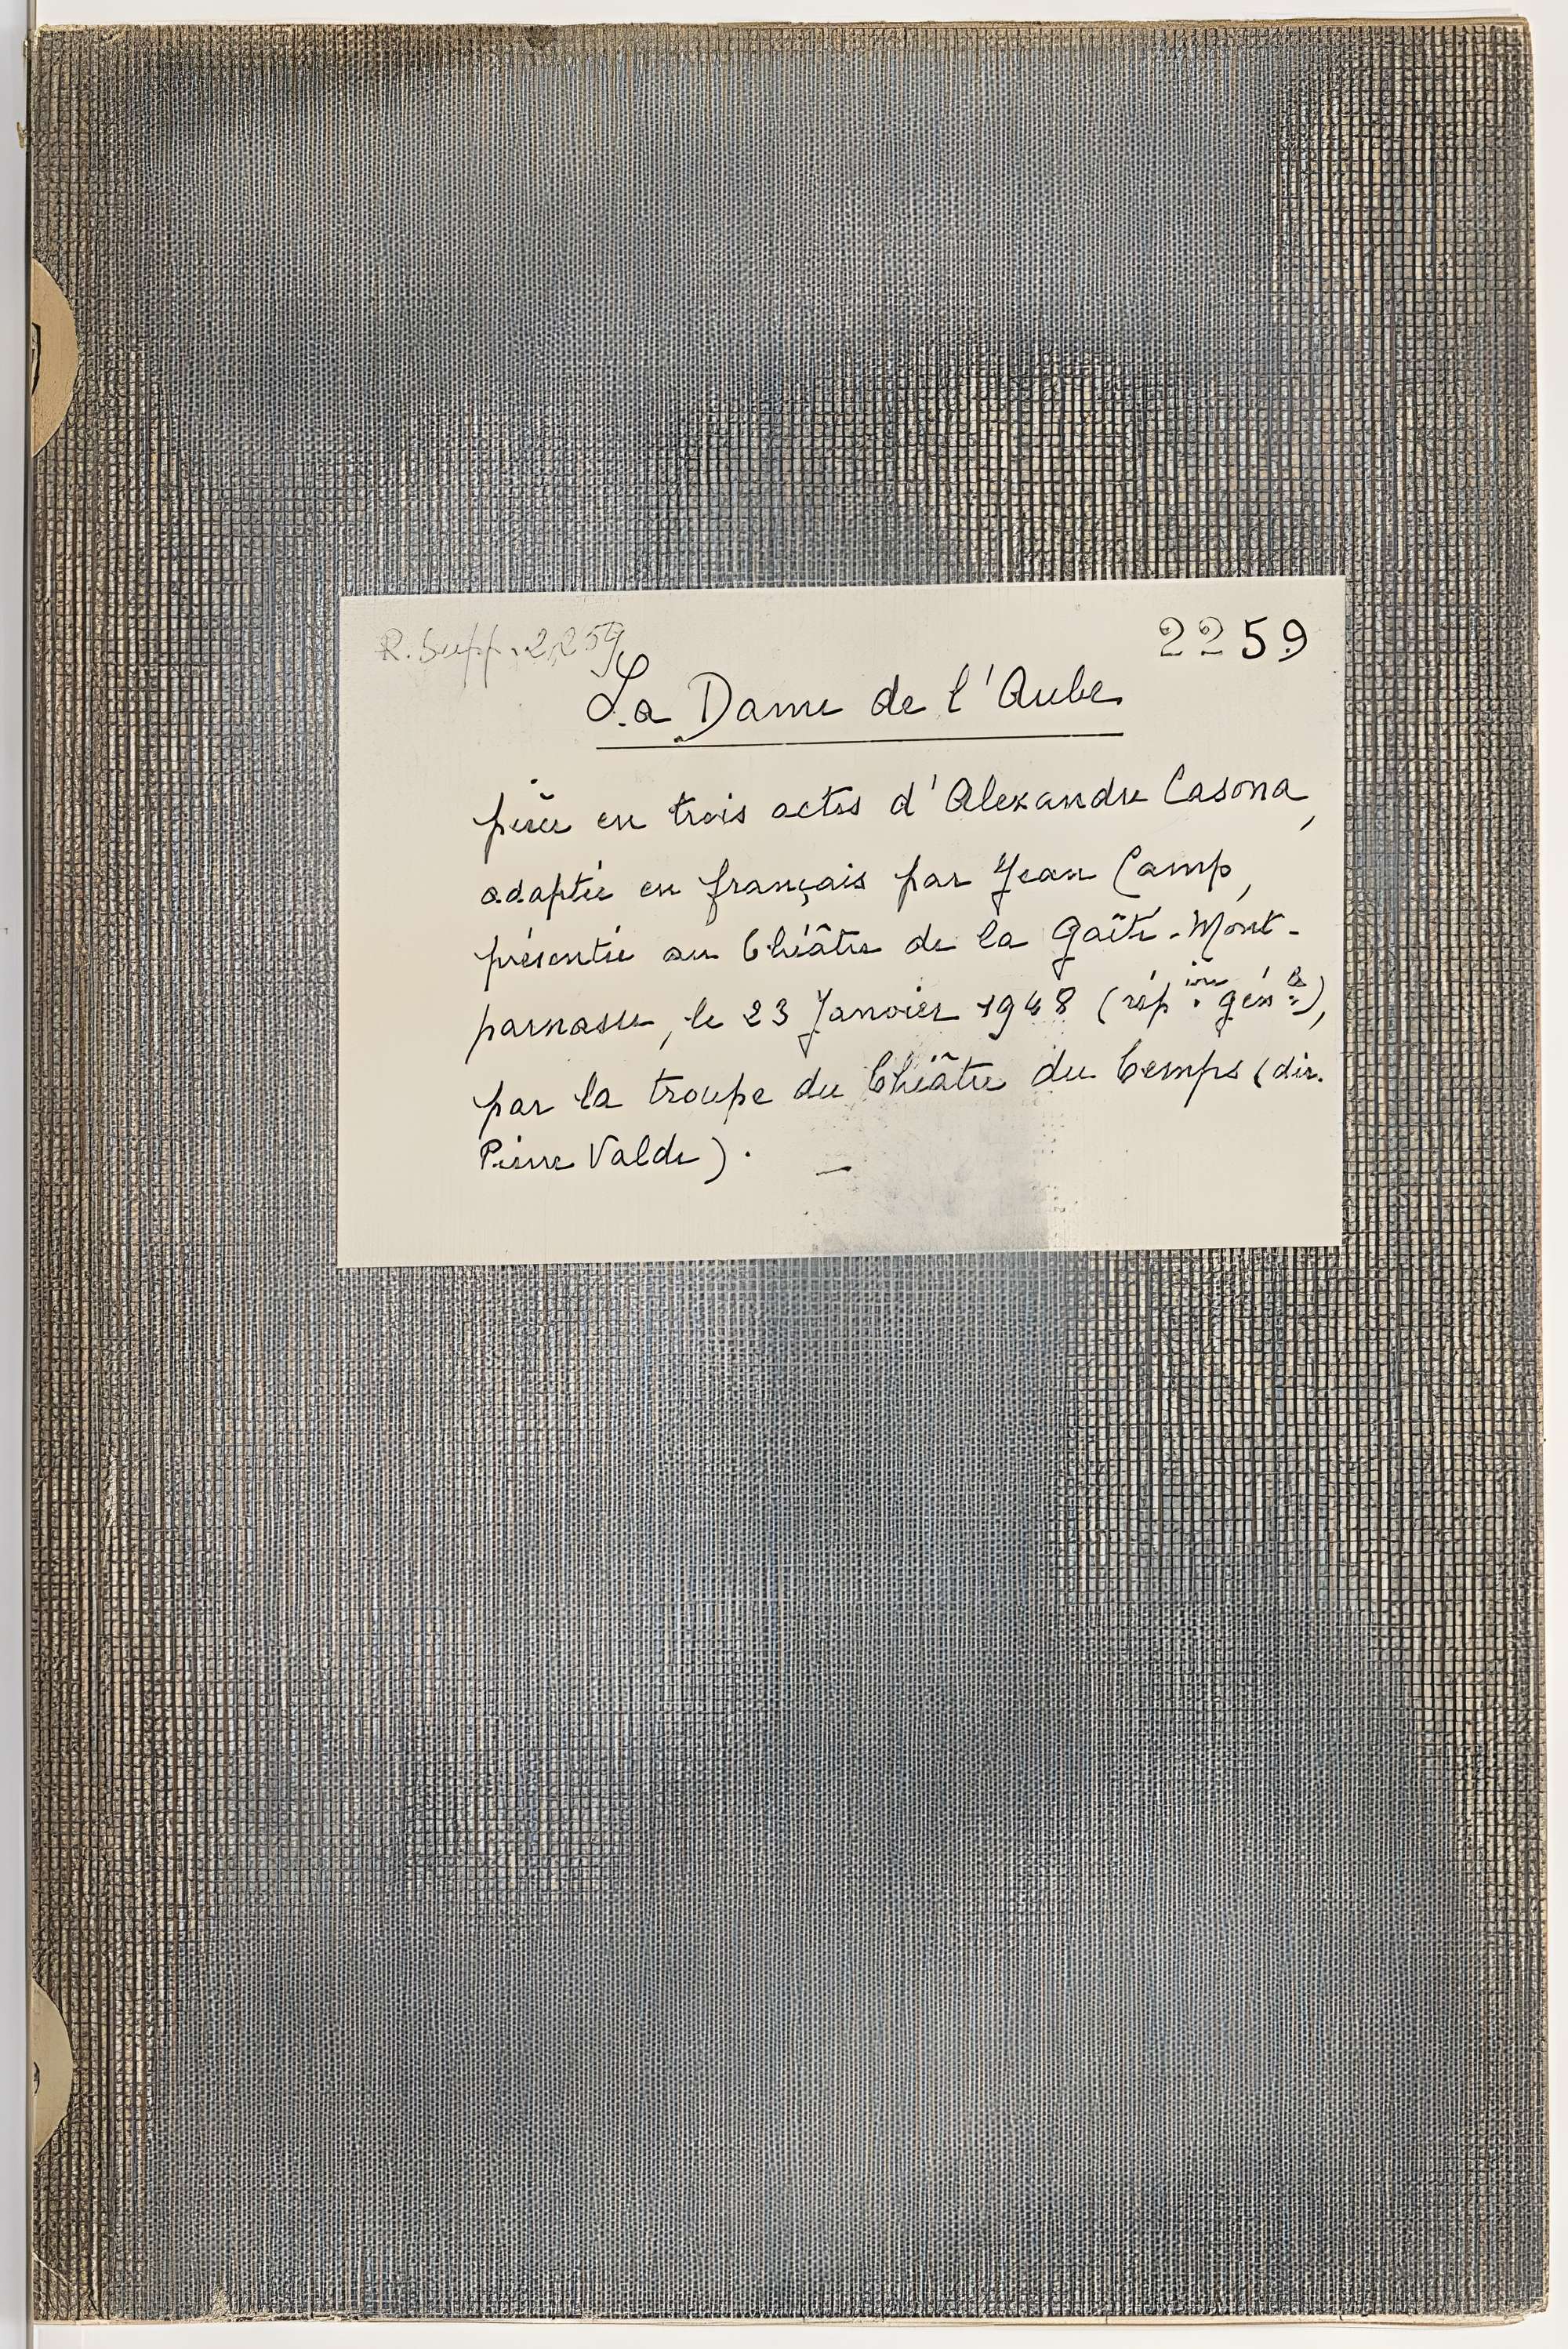 R. Supp. 2259
2259
La Dame de l'Aube
pièce en trois actes d'Alexandre Casona,
adaptée en français par Jean Camp,
présentée au Théâtre de la Gaîté-Mont-
parnasse, le 23 Janvier 1948 (rép.ion gén.le),
par la troupe du Théâtre du Temps (dir.
Pierre Valde). —